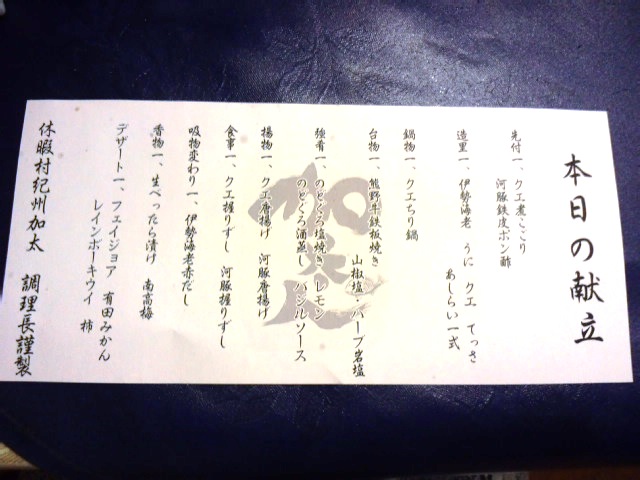 本日の献立
先付一、クエ煮こごり
河豚鉄皮ポン酢
造里一、伊勢海老 うに クエ てっさ
あしらい一式
鍋物一、クエちり鍋
台物一、熊野牛鉄板焼き
山椒塩・ハーブ岩塩
強肴一、のどぐろ塩焼き レモン
のどぐろ酒蒸し バジルソース
揚物一、クエ唐揚げ 河豚唐揚げ
食事一、クエ握りずし 河豚握りずし
吸物変わり一、伊勢海老赤だし
香物一、生べったら漬け 南高梅
デザート一、フェイジョア 有田みかん
レインボーキウイ 柿
休暇村紀州加太 調理長謹製
加太